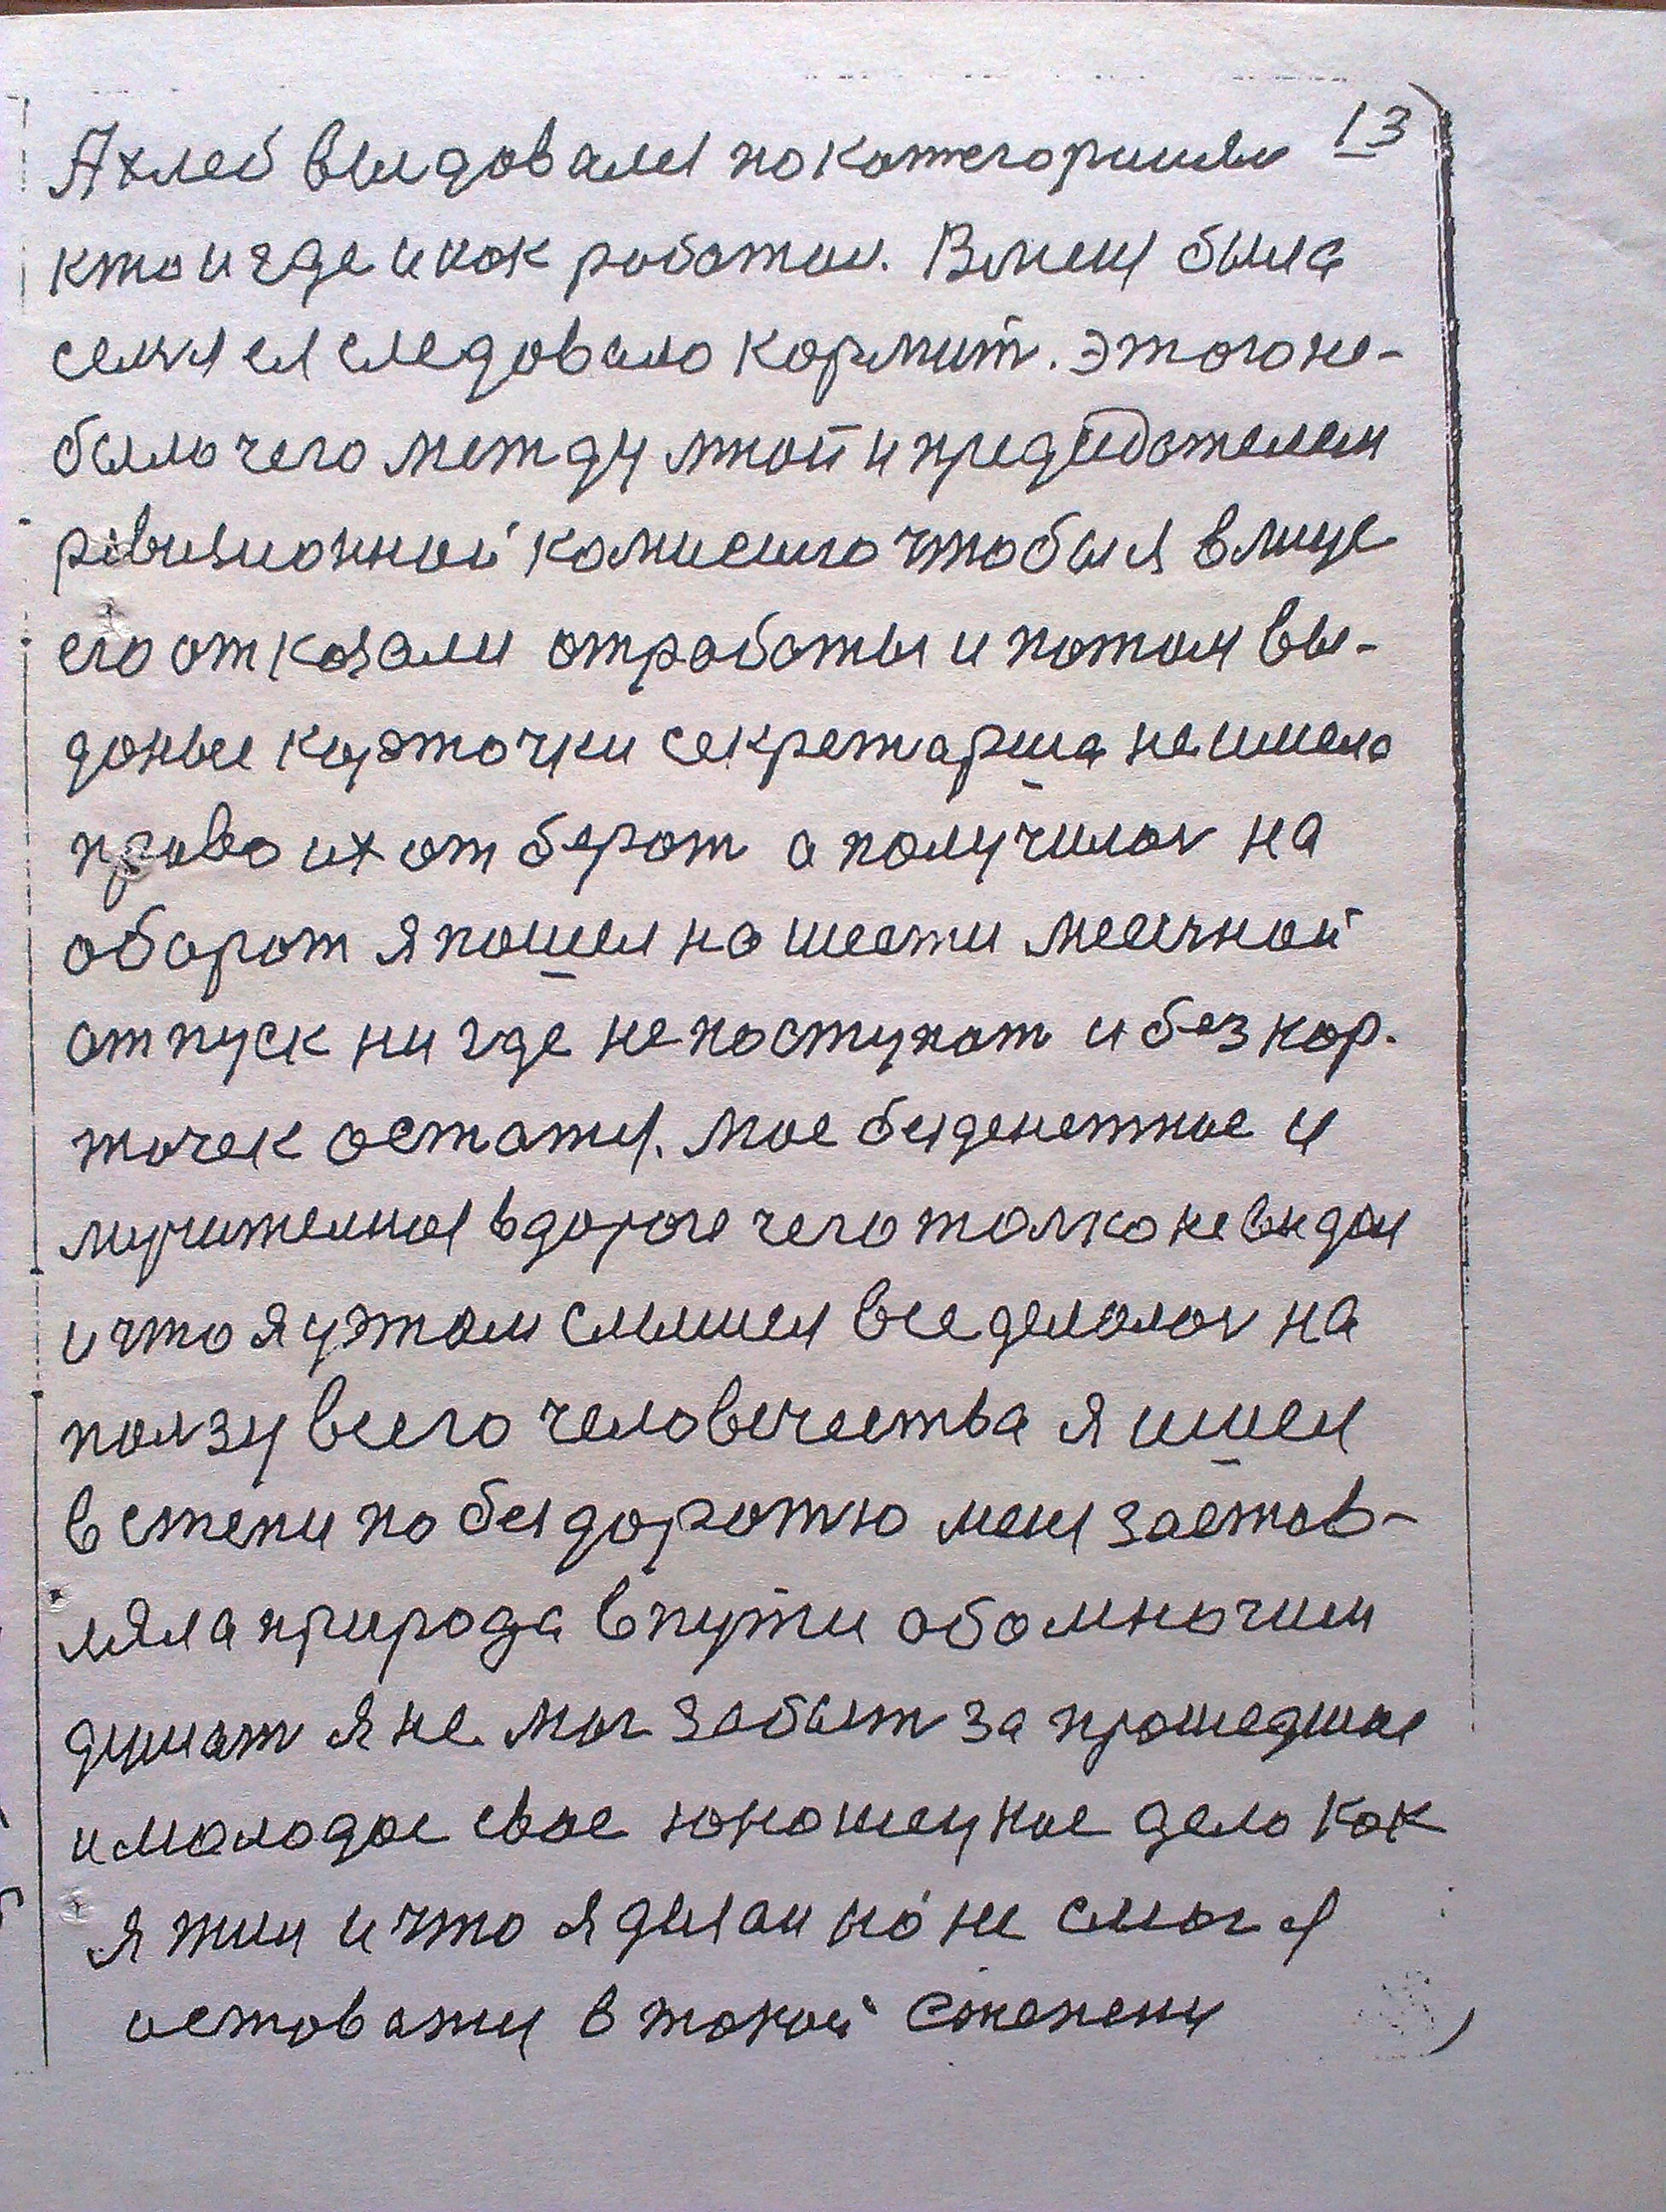 13
А хлеб выдовали по котегориям
кто и где и как роботал. В меня была
семья ея следовало кормит. Этого не-
было чего между мной и председателем
ревизионной комисиию чтобы я в лице
его отказали от работы и потом вы-
доные карточки секретарша не имела
право их отберат а получилось на
оборот я пошел на шести месячной
отпуск ни где не поступат и без кар-
точек остатся. Мое безденежное и
мучителное в дороге чего толко не видал
и что я уэтом слышел все делолось на
ползу всего человечества я ишел
в степи по бездорожю меня застав-
ляла природа в пути обо мночим
думат я не мог забыт за прошедшее
и молодое свое юношеукое дело как
я жил и что я делал но не смог я
оставатся в токой степени